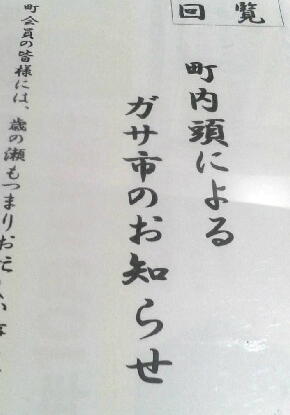 回覧
町内頭による
ガサ市のお知らせ
町会員の皆様には、歳の瀬もつまりお忙しい